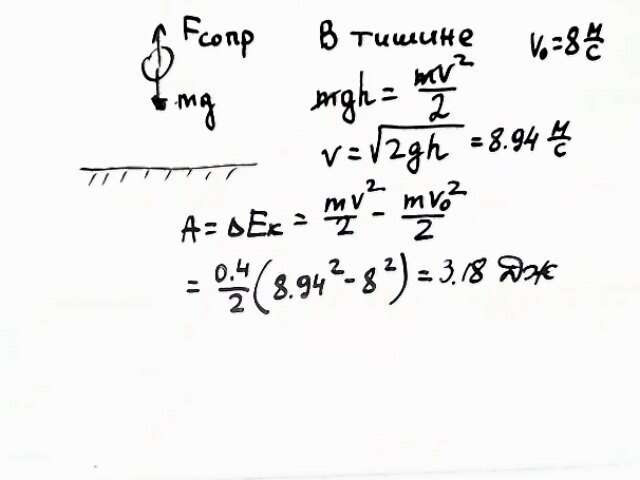 Fсопр В тишине V₀=8 м/с
mg mgh = mv²/2
v = √2gh = 8.94 м/с
A = ΔEк = mv²/2 - mv₀²/2
= 0.4/2 (8.94² - 8²) = 3.18 Дж